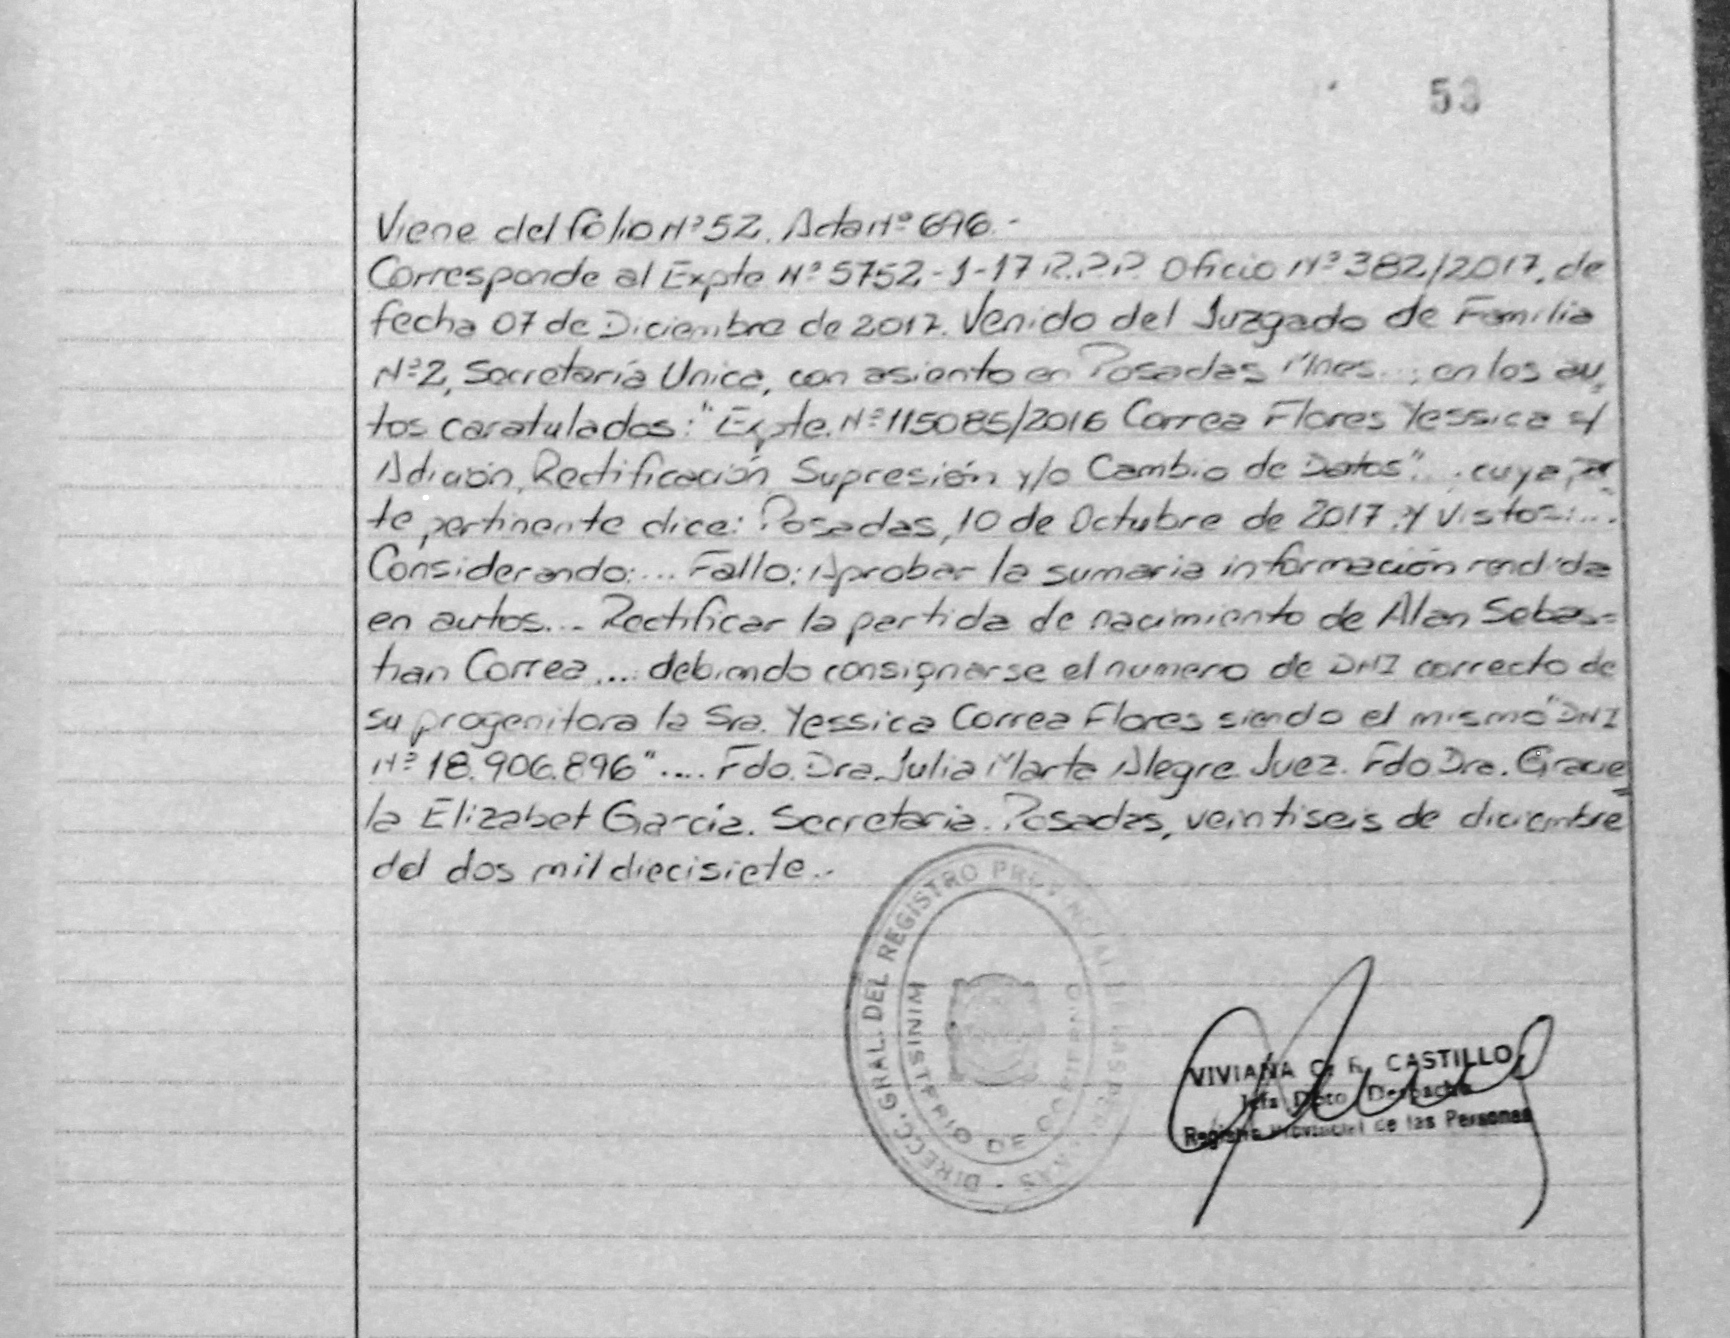 53
Viene del folio Nº 52. Acta Nº 696.-
Corresponde al Expte Nº 5752-1-17 R.P.P. Oficio Nº 382/2017, de
fecha 07 de Diciembre de 2017. Venido del Juzgado de Familia
Nº 2, Secretaría Unica, con asiento en Posadas Mnes...; en los au
tos caratulados: "Expte. Nº 115085/2016 Correa Flores Yessica s/
Adición, Rectificación Supresión y/o Cambio de Datos"... cuya par
te pertinente dice: Posadas, 10 de Octubre de 2017. Y Vistos:...
Considerando:... Fallo: Aprobar la sumaria información rendida
en autos... Rectificar la partida de nacimiento de Alan Sebas=
tian Correa.... debiendo consignarse el numero de DNI correcto de
su progenitora la Sra. Yessica Correa Flores siendo el mismo "DNI
Nº 18.906.896".... Fdo. Dra. Julia Marta Alegre. Juez. Fdo Dra. Gracie
la Elizabet García. Secretaria. Posadas, veintiseis de diciembre
del dos mil diecisiete.-
DIRECC. GRAL. DEL REGISTRO PROVINCIAL DE LAS PERSONAS
MINISTERIO DE GOBIERNO
VIVIANA CASTILLO
Jefa Dpto Despacho
Registro Provincial de las Personas